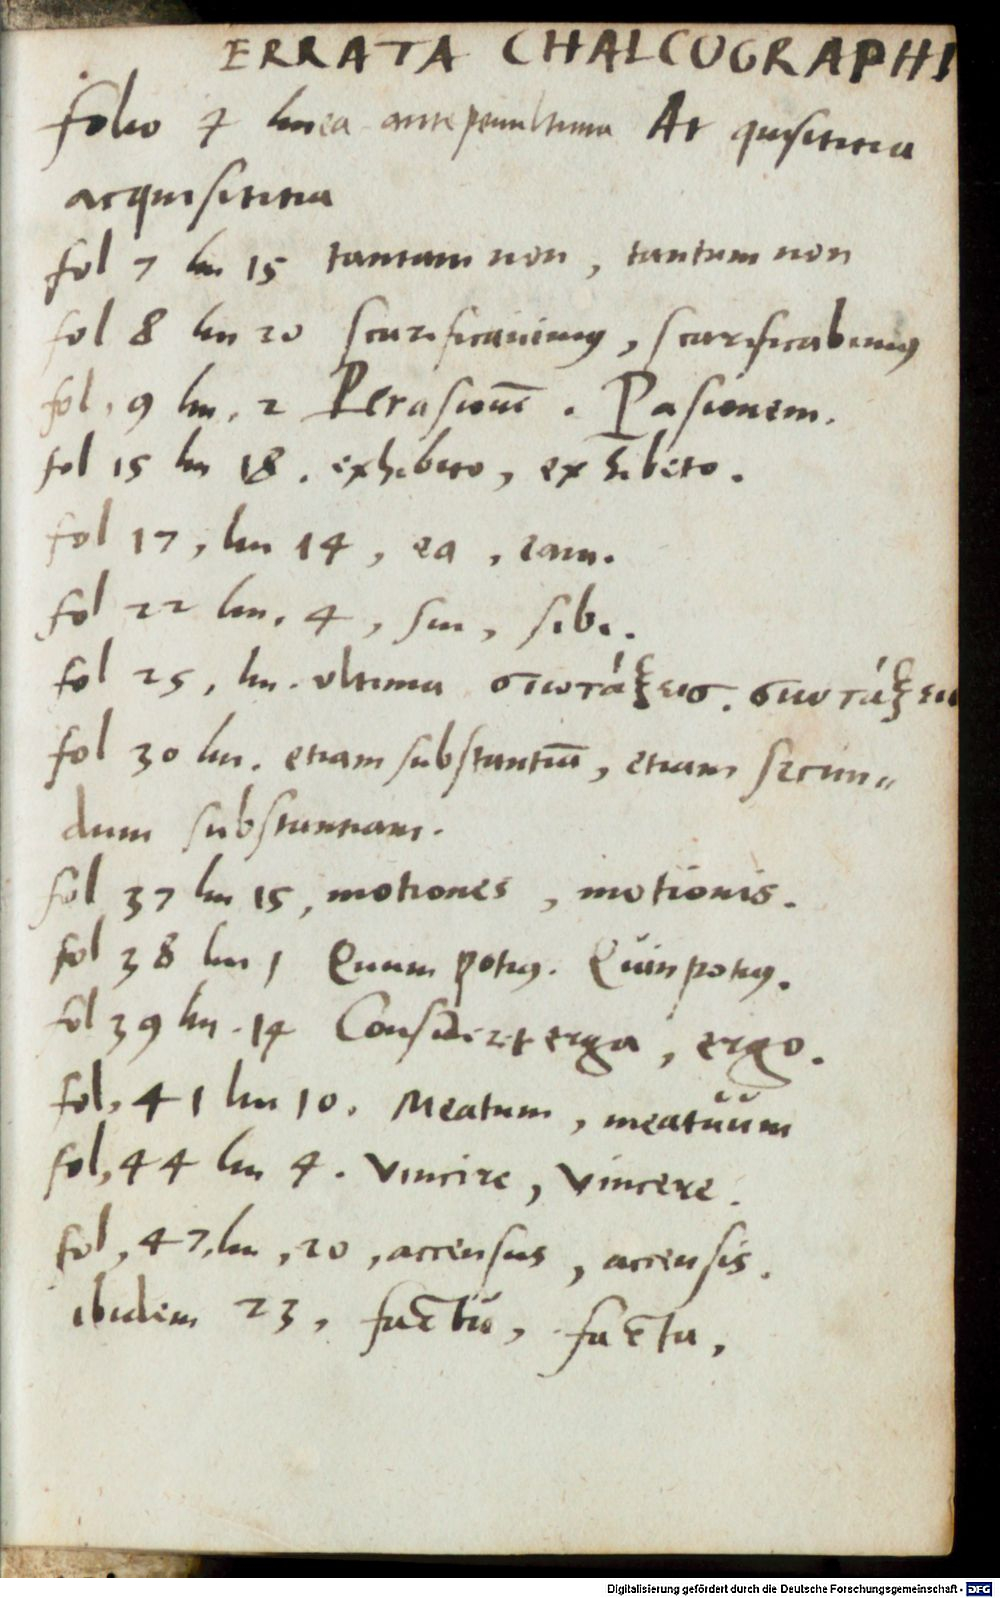 ERRATA CHALCOGRAPHI
folio 4 linea antepenultima At quisititia
acquisititia
fol 7 lin 15 tantam non, tantum non
fol 8 lin 20 scarificauimus, scarificabimus
fol. 9 lin. 2 Perasionē. Pasionem.
fol 15 lin 18. exhibito, exhibeto.
fol 17, lin 14, ea, eam.
fol 22 lin. 4, sui, sibi.
fol 25, lin. ultima
fol 30 lin. etiam substantiā, etiam secun
dum substantiam.
fol 37 lin 15, motiones, motionis.
fol 38 lin 1 Quum potius. Quin potius.
fol 39 lin. 14 Consideret erga, ergo.
fol, 41 lin 10. Meatum, meatuum
fol, 44 lin 4. vincire, vincere.
fol, 47, lin, 20, accensus, accensis.
ibidem 23, factū, facta,
Digitalisierung gefördert durch die Deutsche Forschungsgemeinschaft - DFG